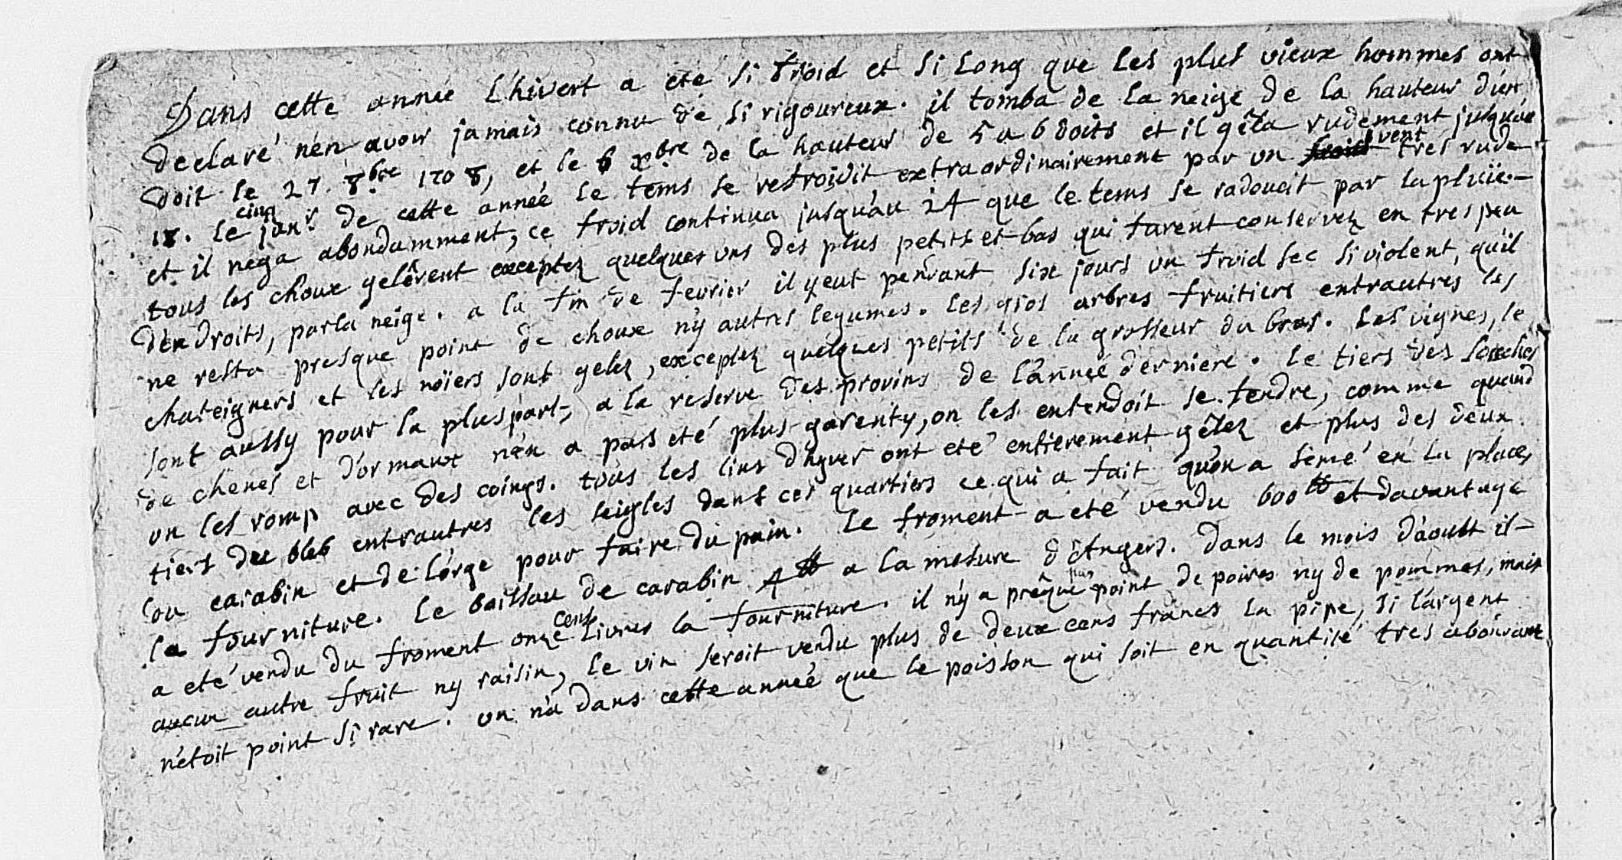 Dans cette année L'hivert a eté si froid et si Long que Les plus vieux hommes ont
declaré n'en avoir jamais connu de si rigoureux. il tomba de La neige de La hauteur d'un
doit le 27. 8bre 1708, et le 6 xbre de la hauteur de 5 a 6 doits et il gêla rudement jusqu'au
18. Le cinq janr de cette année le tems se refroidit extraordinairement par un froid vent tres rude
et il nega abondamment, ce froid continua jusqu'au 24 que le tems se radoucit par la pluie.
tous les choux gelêrent exceptez quelques uns des plus petits et bas qui furent conservez en tres peu
d'endroits, par la neige. a la fin de fevrier il y eut pendant six jours un froid sec si violent, qu'il
ne resta presque point de choux n'y autres legumes. Les gros arbres fruitiers entrautres les
chateigners et les noïers sont gelez, exceptez quelques petits de la grosseur du bras. Les vignes, le
sont aussy pour la pluspart, a la reserve des provins de l'année derniere. Le tiers des souches
de chenes et d'ormaux n'en a pas eté plus garenty, on les entendoit se fendre, comme quand
on les romp avec des coings. tous les lins d'hyver ont eté entierement gêlez et plus des deux
tiers des bleds entrautres les seigles dans ces quartiers ce qui a fait qu'on a semé en la place,
cou carabin et de l'orge pour faire du pain. Le froment a eté vendu 600 tt et davantage
la fourniture. Le boissau de carabin 4 tt a la mesure d'Angers. Dans le mois d'aoust il
a eté vendu du froment onze cens Livres la fourniture. il n'y a prêque plus point de poires ny de pommes, mais
aucun autre fruit ny raisin, Le vin seroit vendu plus de deux cens francs La pipe, si l'argent
n'étoit point si rare. on n'a dans cette année que le poisson qui soit en quantité tres abondante